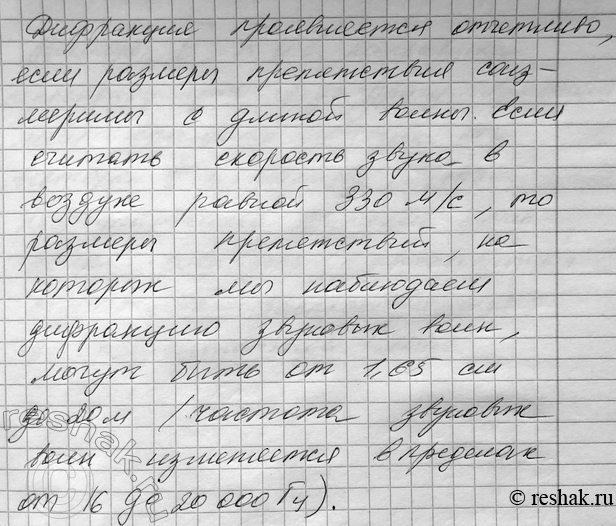 Дифракция проявляется отчетливо,
если размеры препятствия соиз-
меримы с длиной волны. Если
считать скорость звука в
воздухе равной 330 м/с, то
размеры препятствий, на
которых мы наблюдаем
дифракцию звуковых волн,
могут быть от 1,65 см
до 20м (частота звуковых
волн изменяется в пределах
от 16 до 20 000 Гц).
© reshak.ru